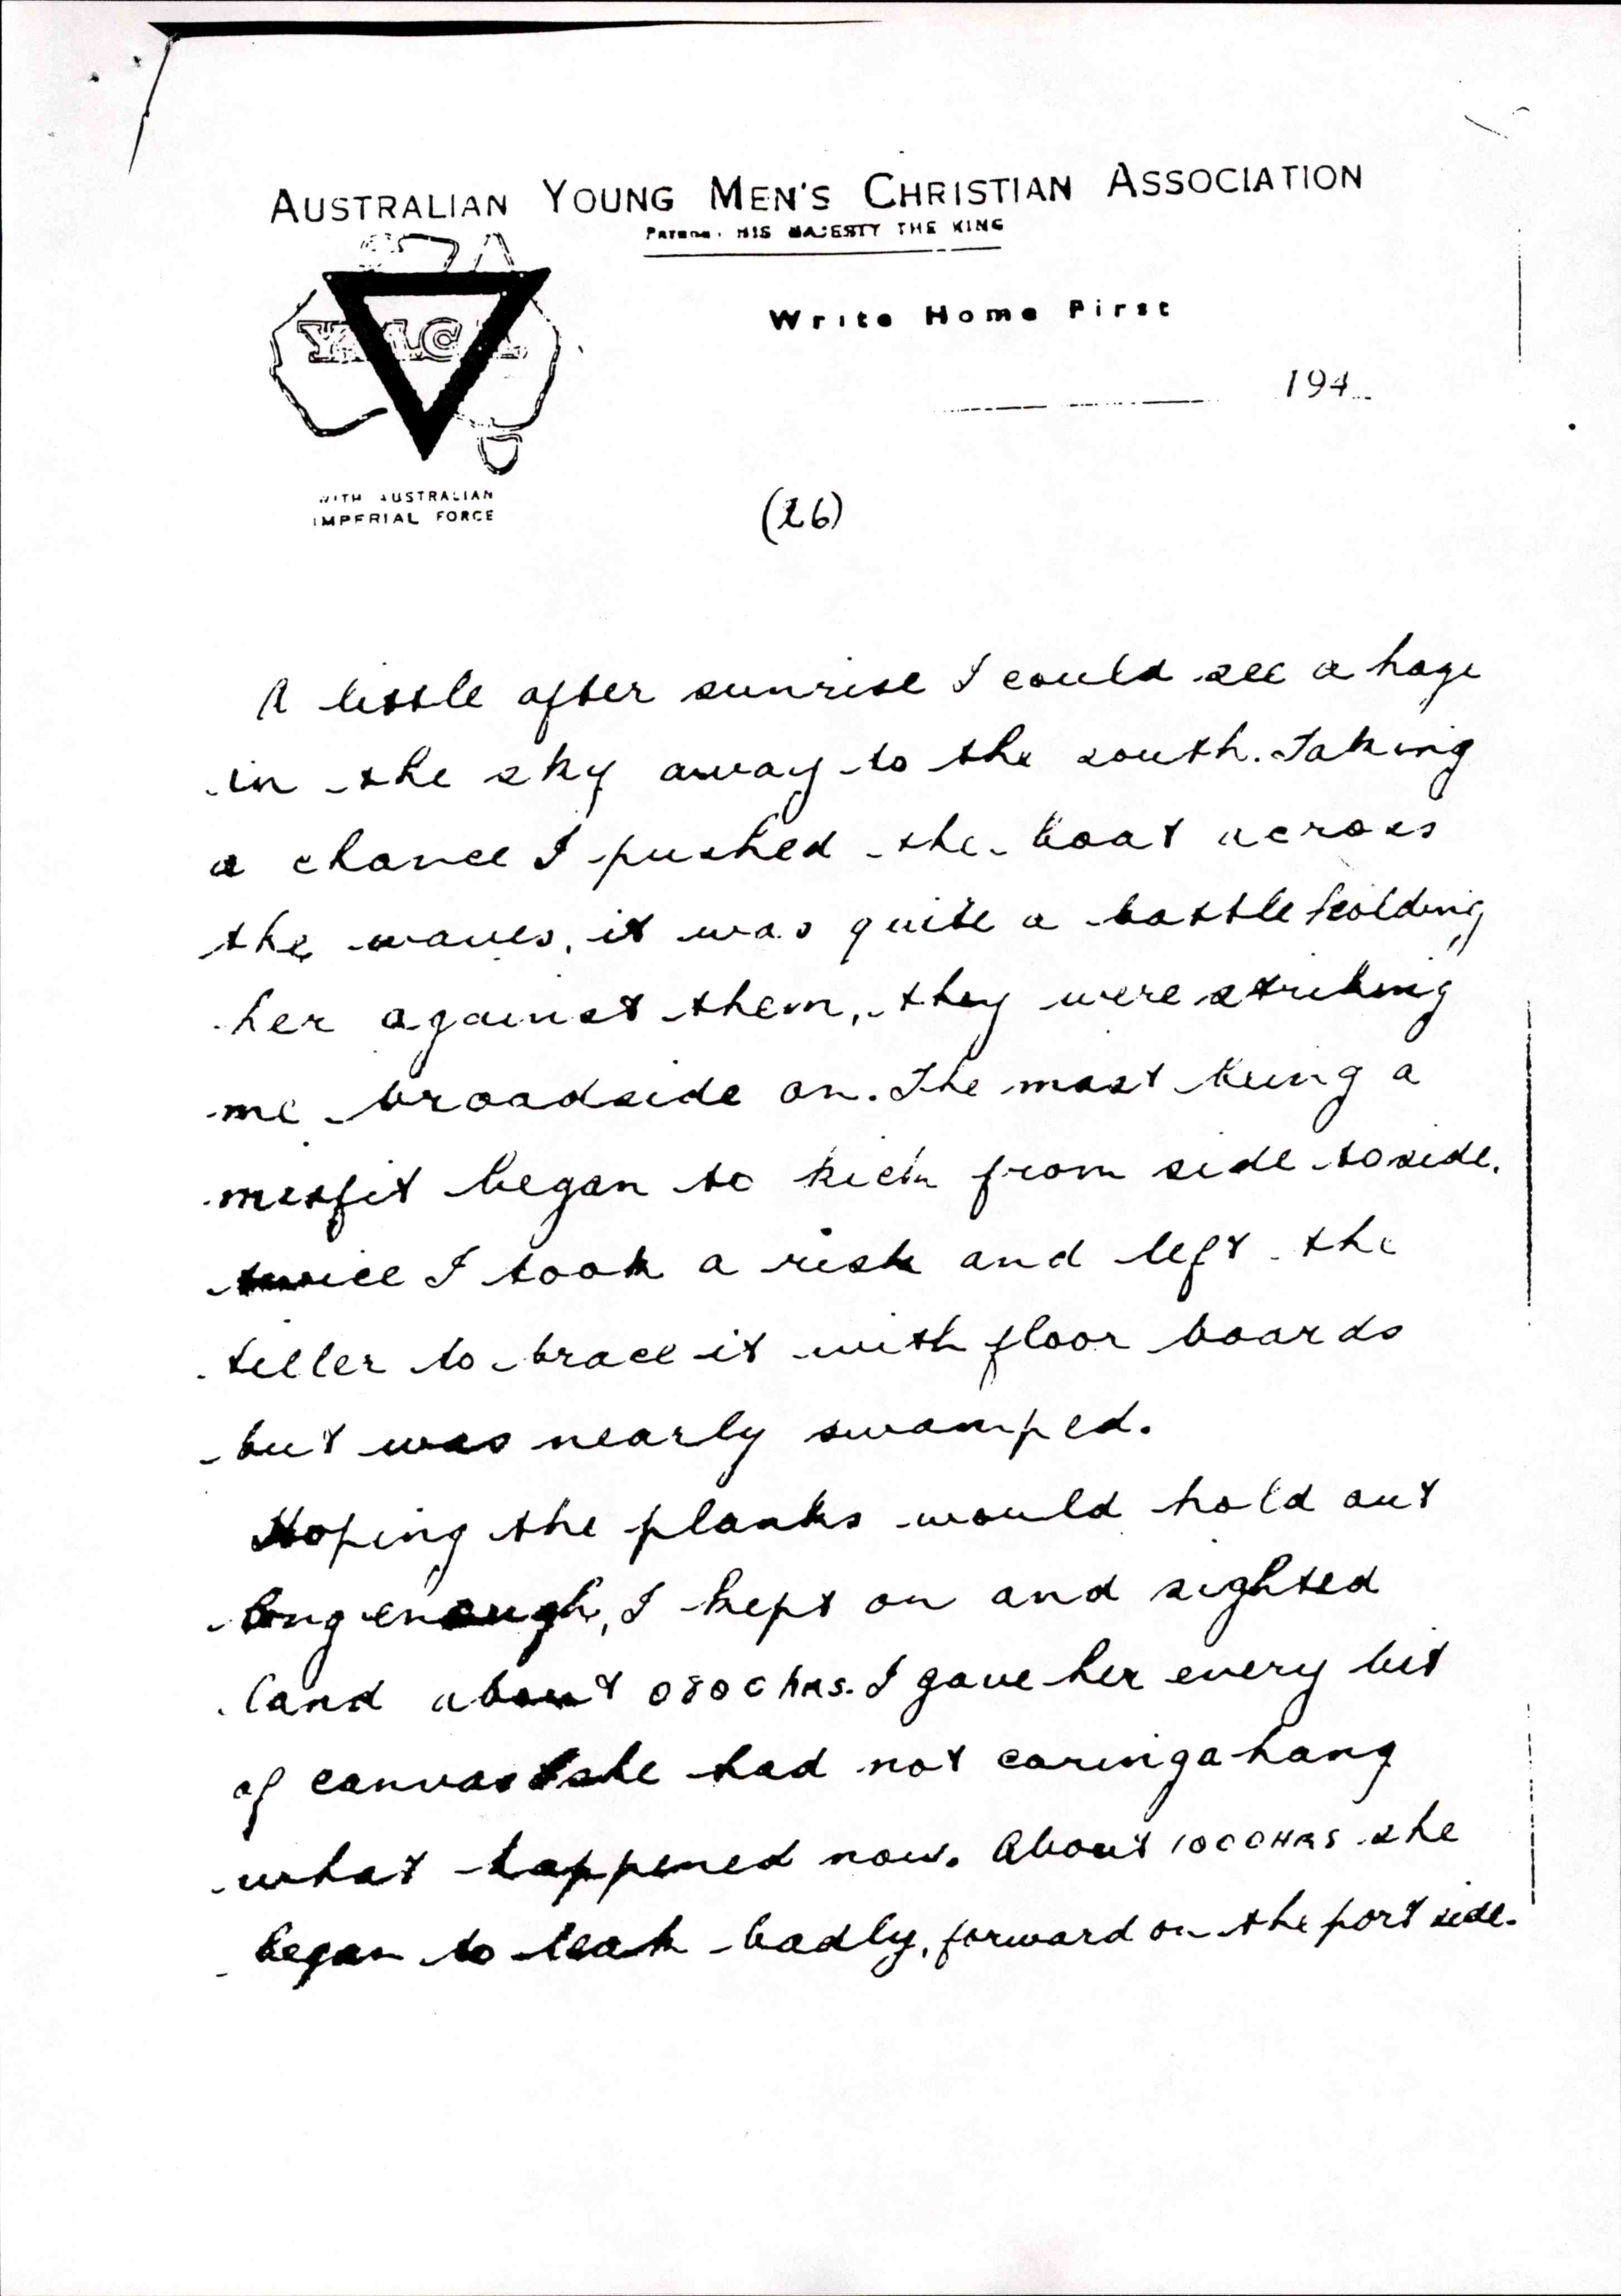 AUSTRALIAN YOUNG MEN'S CHRISTIAN ASSOCIATION
Patron: HIS MAJESTY THE KING
Y.M.C.A.
Write Home First
194
WITH AUSTRALIAN
IMPERIAL FORCE
(26)
A little after sunrise I could see a haze
in the sky away to the south. Taking
a chance I pushed the boat across
the waves, it was quite a battle holding
her against them, they were striking
me broadside on. The mast being a
misfit began to kick from side to side.
twice I took a risk and left the
tiller to brace it with floor boards
but was nearly swamped.
Hoping the planks would hold out
long enough, I kept on and sighted
land about 0800 hrs. I gave her every bit
of canvas she had not caring a hang
what happened now. About 1000 HRS she
began to leak badly, forward on the port side.